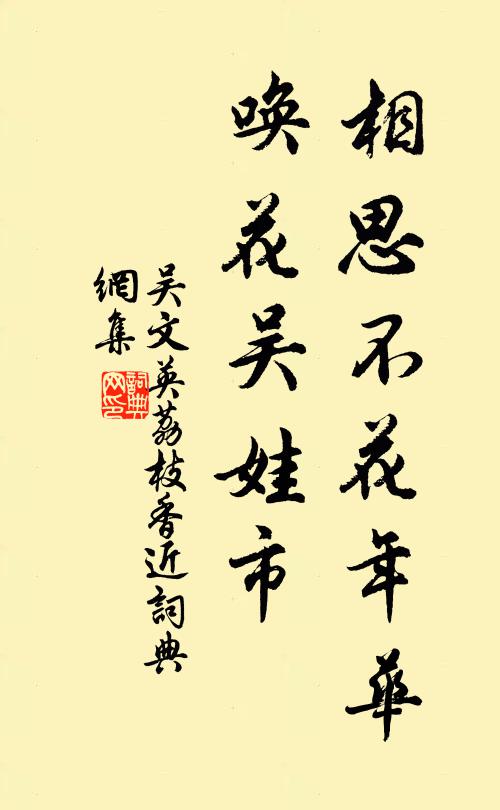 相思不花年華
喚花吴娃市
吴文英荔枝香近詞典
網集
詞典
网印